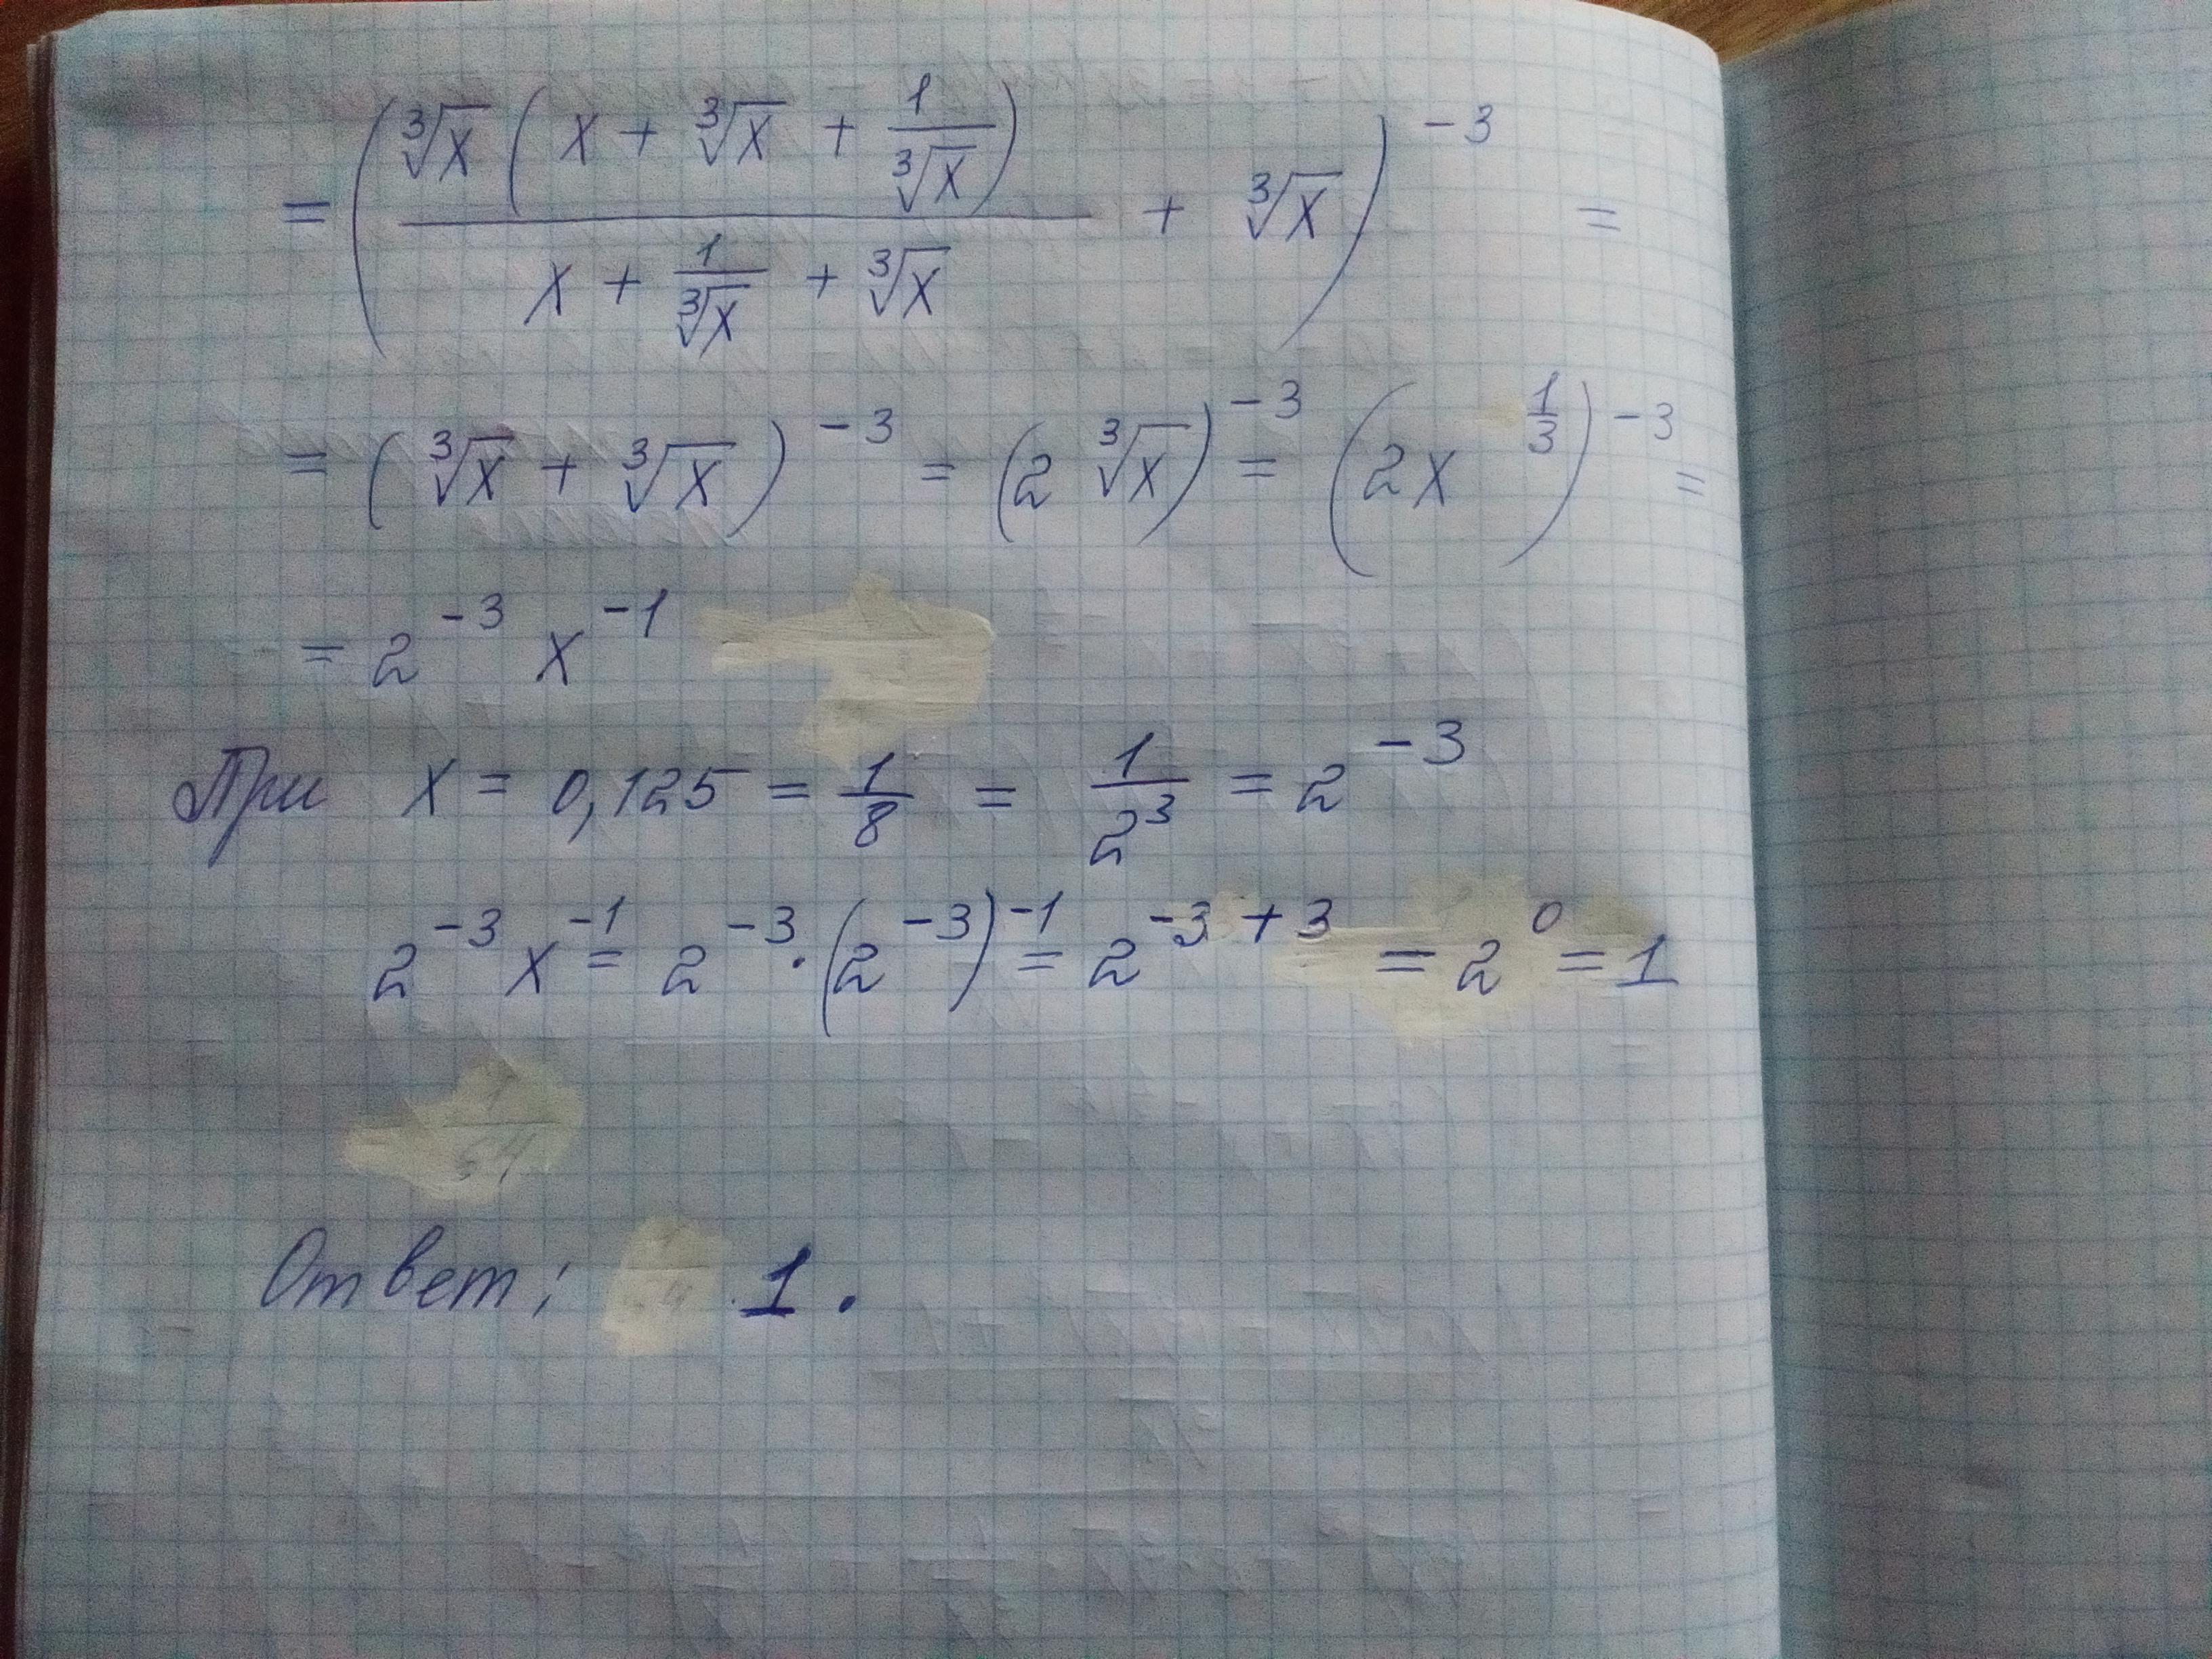 = (∛x (x + ∛x + 1/∛x) / (x + 1/∛x + ∛x) + ∛x)⁻³ =
= (∛x + ∛x)⁻³ = (2 ∛x)⁻³ = (2x^(1/3))⁻³ =
= 2⁻³ x⁻¹
При x = 0,125 = 1/8 = 1/2³ = 2⁻³
2⁻³ x⁻¹ = 2⁻³ · (2⁻³)⁻¹ = 2⁻³⁺³ = 2⁰ = 1
Ответ: 1.